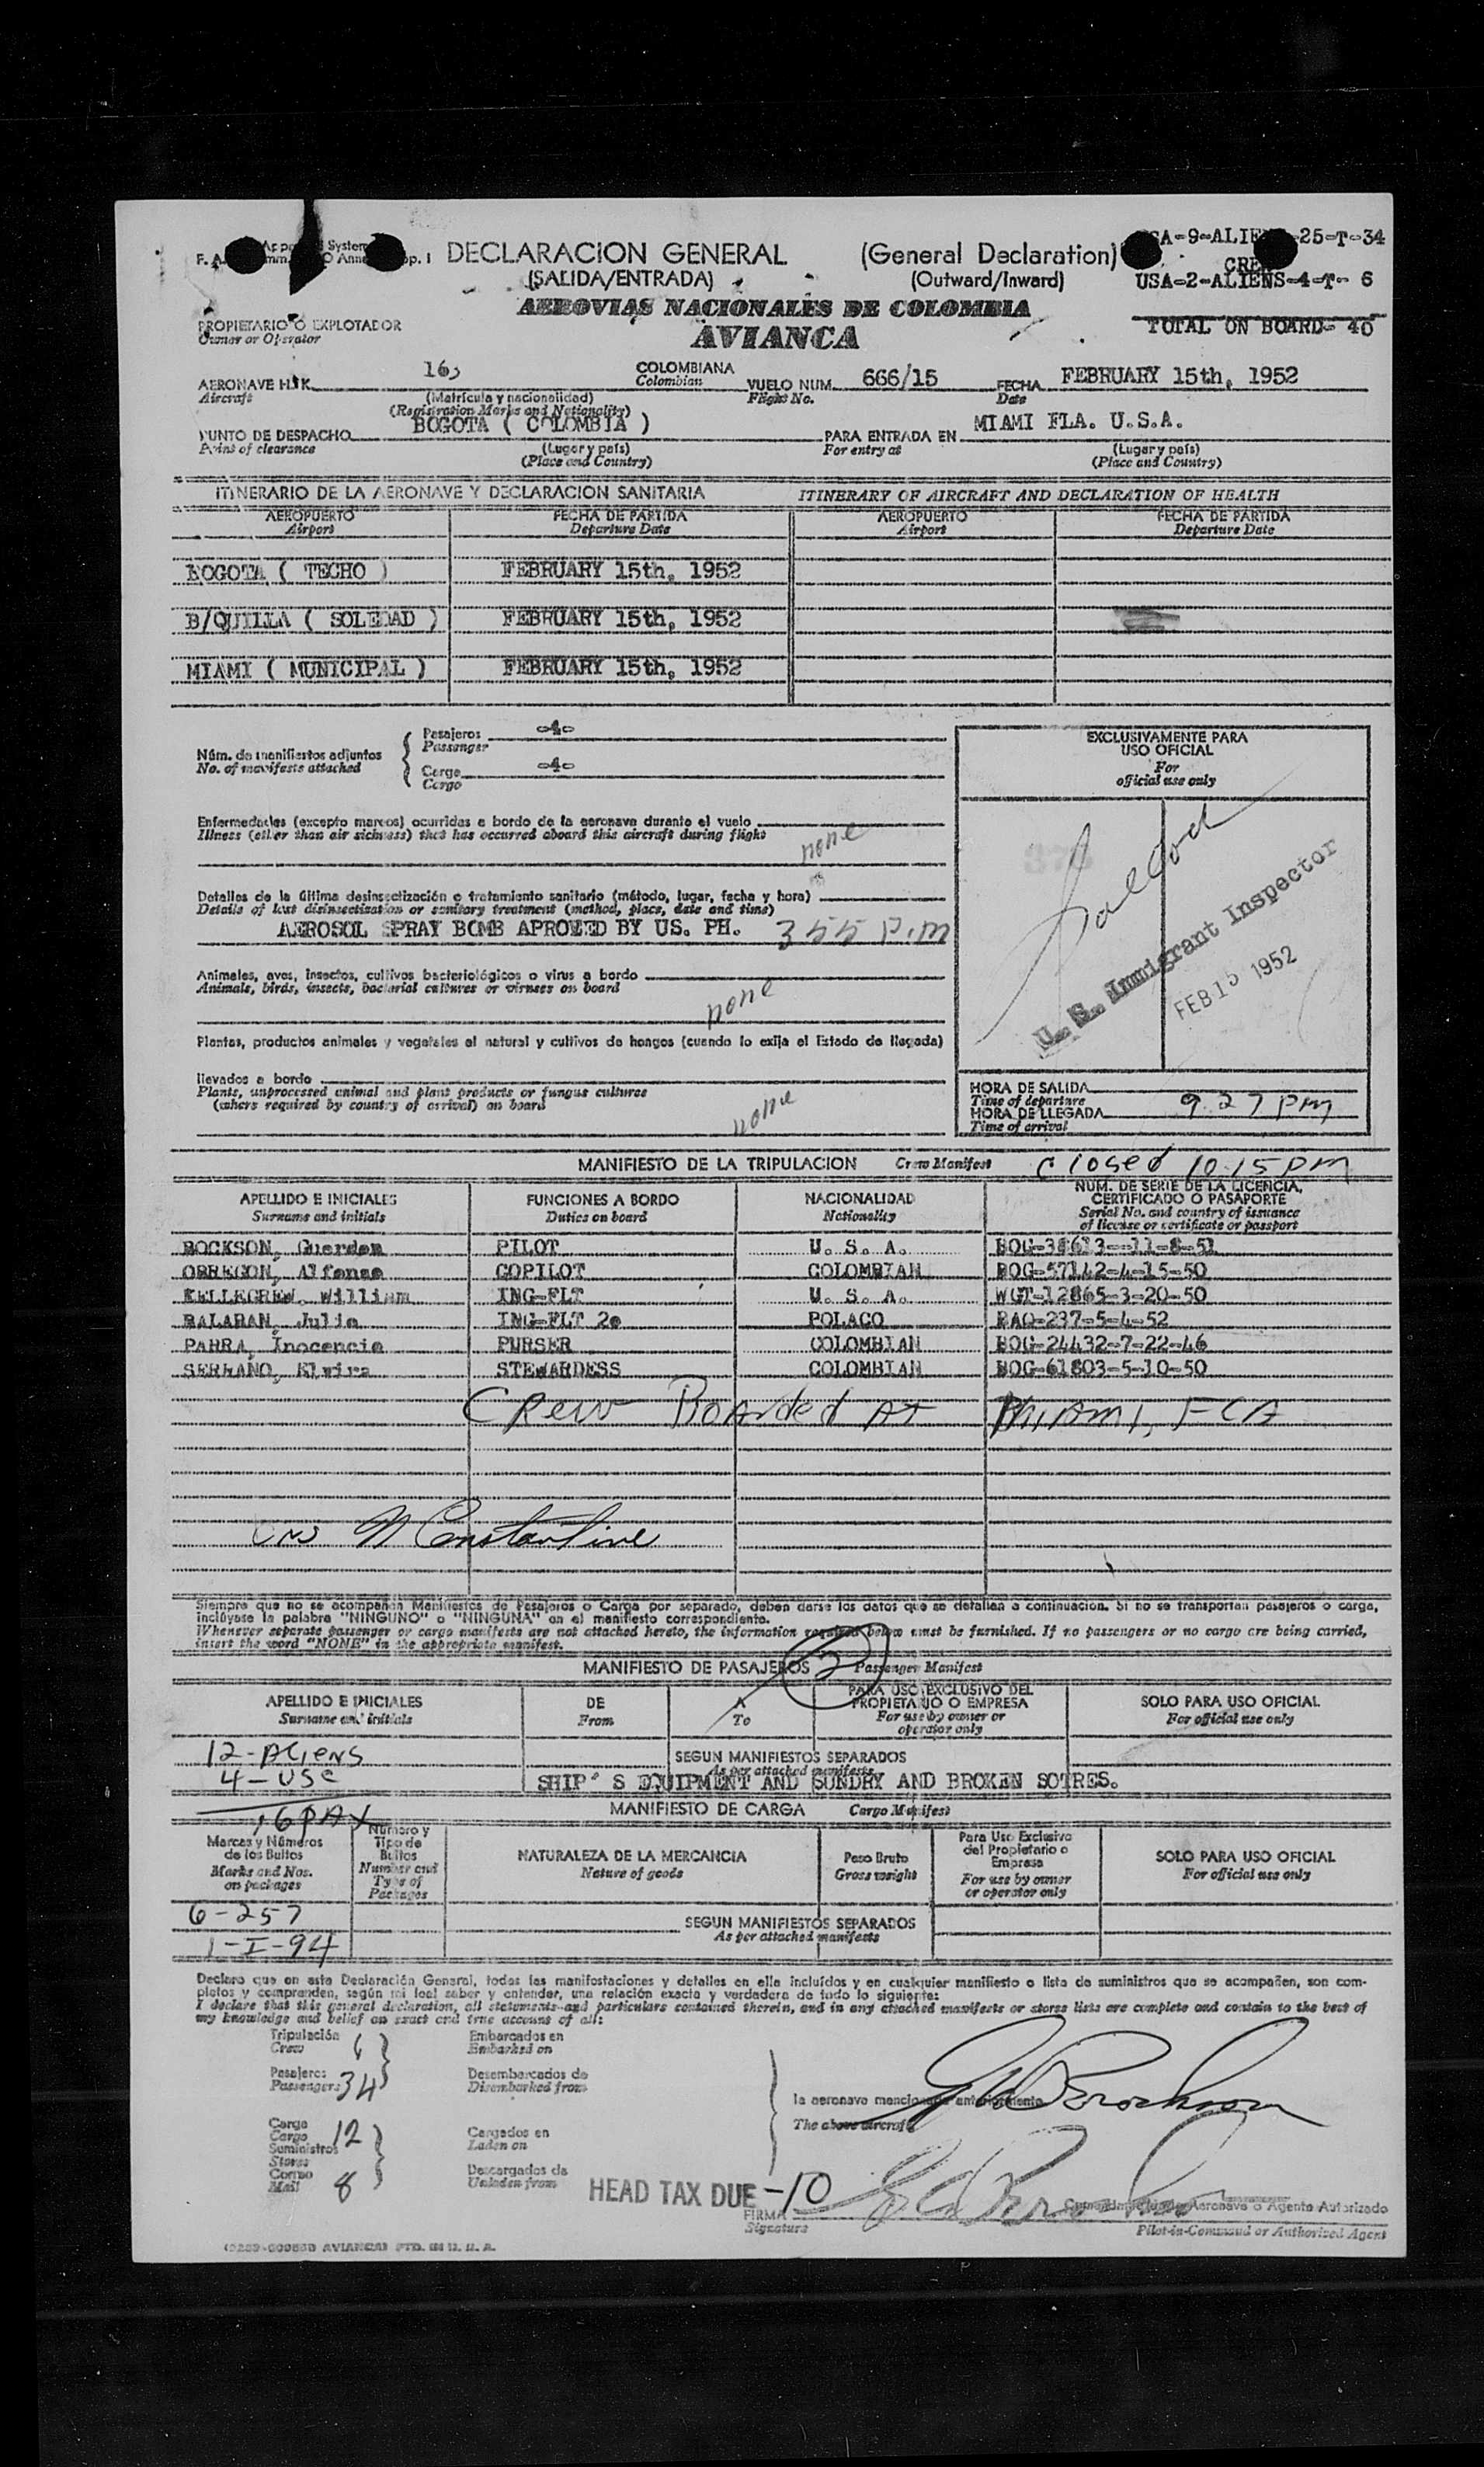 DECLARACION GENERAL (General Declaration)
(SALIDA/ENTRADA) (Outward/Inward)
-9-ALIENS-25-T-34
CREW
USA-2-ALIENS-4-T- 6
AEROVIAS NACIONALES DE COLOMBIA
AVIANCA
TOTAL ON BOARD- 40
PROPIETARIO O EXPLOTADOR
Owner or Operator
AERONAVE H.K. COLOMBIANA VUELO NUM. 666/15 FECHA FEBRUARY 15th, 1952
Aircraft (Matrícula y nacionalidad) Colombian Flight No. Date
(Registration Marks and Nationality)
PUNTO DE DESPACHO BOGOTA ( COLOMBIA ) PARA ENTRADA EN MIAMI FLA. U.S.A.
Point of clearance (Lugar y país) For entry at (Lugar y país)
(Place and Country) (Place and Country)
ITINERARIO DE LA AERONAVE Y DECLARACION SANITARIA ITINERARY OF AIRCRAFT AND DECLARATION OF HEALTH
AEROPUERTO FECHA DE PARTIDA AEROPUERTO FECHA DE PARTIDA
Airport Departure Date Airport Departure Date
BOGOTA ( TECHO ) FEBRUARY 15th, 1952
B/QUILLA ( SOLEDAD ) FEBRUARY 15th, 1952
MIAMI ( MUNICIPAL ) FEBRUARY 15th, 1952
Núm. de manifiestos adjuntos Pasajeros -4-
No. of manifests attached Passenger
Carga -4-
Cargo
EXCLUSIVAMENTE PARA
USO OFICIAL
For
official use only
Enfermedades (excepto mareos) ocurridas a bordo de la aeronave durante el vuelo
Illness (other than air sickness) that has occurred aboard this aircraft during flight none
Detalles de la última desinsectización o tratamiento sanitario (método, lugar, fecha y hora)
Details of last disinsectization or sanitary treatment (method, place, date and time)
AEROSOL SPRAY BOMB APROVED BY US. PH. 355 P.M
U. S. Immigrant Inspector
FEB 15 1952
Animales, aves, insectos, cultivos bacteriológicos o virus a bordo
Animals, birds, insects, bacterial cultures or viruses on board none
Plantas, productos animales y vegetales al natural y cultivos de hongos (cuando lo exija el Estado de llegada)
llevados a bordo
Plants, unprocessed animal and plant products or fungus cultures
(where required by country of arrival) on board none
HORA DE SALIDA
Time of departure
HORA DE LLEGADA 9 27 PM
Time of arrival
MANIFIESTO DE LA TRIPULACION Crew Manifest Closed 10.15 PM
APELLIDO E INICIALES FUNCIONES A BORDO NACIONALIDAD NUM. DE SERIE DE LA LICENCIA,
CERTIFICADO O PASAPORTE
Surname and initials Duties on board Nationality Serial No. and country of issuance
of license or certificate or passport
ROCKSON, Guerdon PILOT U. S. A. BOG-38613--11-8-51
OBREGON, Alfonso COPILOT COLOMBIAN BOG-57142-4-15-50
KELLEGREW, William ING-FLT U. S. A. WGT-12865-3-20-50
BALABAN, Julio ING-FLT 2o POLACO RAQ-237-5-4-52
PARRA, Inocencio PURSER COLOMBIAN BOG-24432-7-22-46
SERRANO, Elvira STEWARDESS COLOMBIAN BOG-61803-5-10-50
Crew Boarded At Miami, FLA
Constantine
Siempre que no se acompañen Manifiestos de Pasajeros o Carga por separado, deben darse los datos que se detallan a continuación. Si no se transportan pasajeros o carga,
inclúyase la palabra "NINGUNO" o "NINGUNA" en el manifiesto correspondiente.
Whenever separate passenger or cargo manifests are not attached hereto, the information required below must be furnished. If no passengers or no cargo are being carried,
insert the word "NONE" in the appropriate manifest.
MANIFIESTO DE PASAJEROS 2 Passenger Manifest
APELLIDO E INICIALES DE A PARA USO EXCLUSIVO DEL
PROPIETARIO O EMPRESA SOLO PARA USO OFICIAL
Surname and initials From To For use by owner or
operator only For official use only
12-ALIENS SEGUN MANIFIESTOS SEPARADOS
As per attached manifests
4-USC SHIP'S EQUIPMENT AND SUNDRY AND BROKEN SOTRES.
16 PAX MANIFIESTO DE CARGA Cargo Manifest
Marcas y Números
de los Bultos
Marks and Nos.
on packages
Número y
Tipo de
Bultos
Number and
Type of
Packages
NATURALEZA DE LA MERCANCIA
Nature of goods
Peso Bruto
Gross weight
Para Uso Exclusivo
del Propietario o
Empresa
For use by owner
or operator only
SOLO PARA USO OFICIAL
For official use only
6-257 SEGUN MANIFIESTOS SEPARADOS
1-I-94 As per attached manifests
Declaro que en esta Declaración General, todas las manifestaciones y detalles en ella incluídos y en cualquier manifiesto o lista de suministros que se acompañen, son com-
pletos y comprenden, según mi leal saber y entender, una relación exacta y verdadera de todo lo siguiente:
I declare that this general declaration, all statements and particulars contained therein, and in any attached manifests or stores lists are complete and contain to the best of
my knowledge and belief an exact and true account of all:
Tripulación 6 Embarcados en
Crew Embarked on
Pasajeros 34 Desembarcados de
Passengers Disembarked from
la aeronave mencionada anteriormente
The above aircraft
Carga
Cargo 12 Cargados en
Suministros Laden on
Stores
Correo 8 Descargados de
Mail Unladen from
HEAD TAX DUE -10
FIRMA Comandante de Aeronave o Agente Autorizado
Signature Pilot-in-Command or Authorized Agent